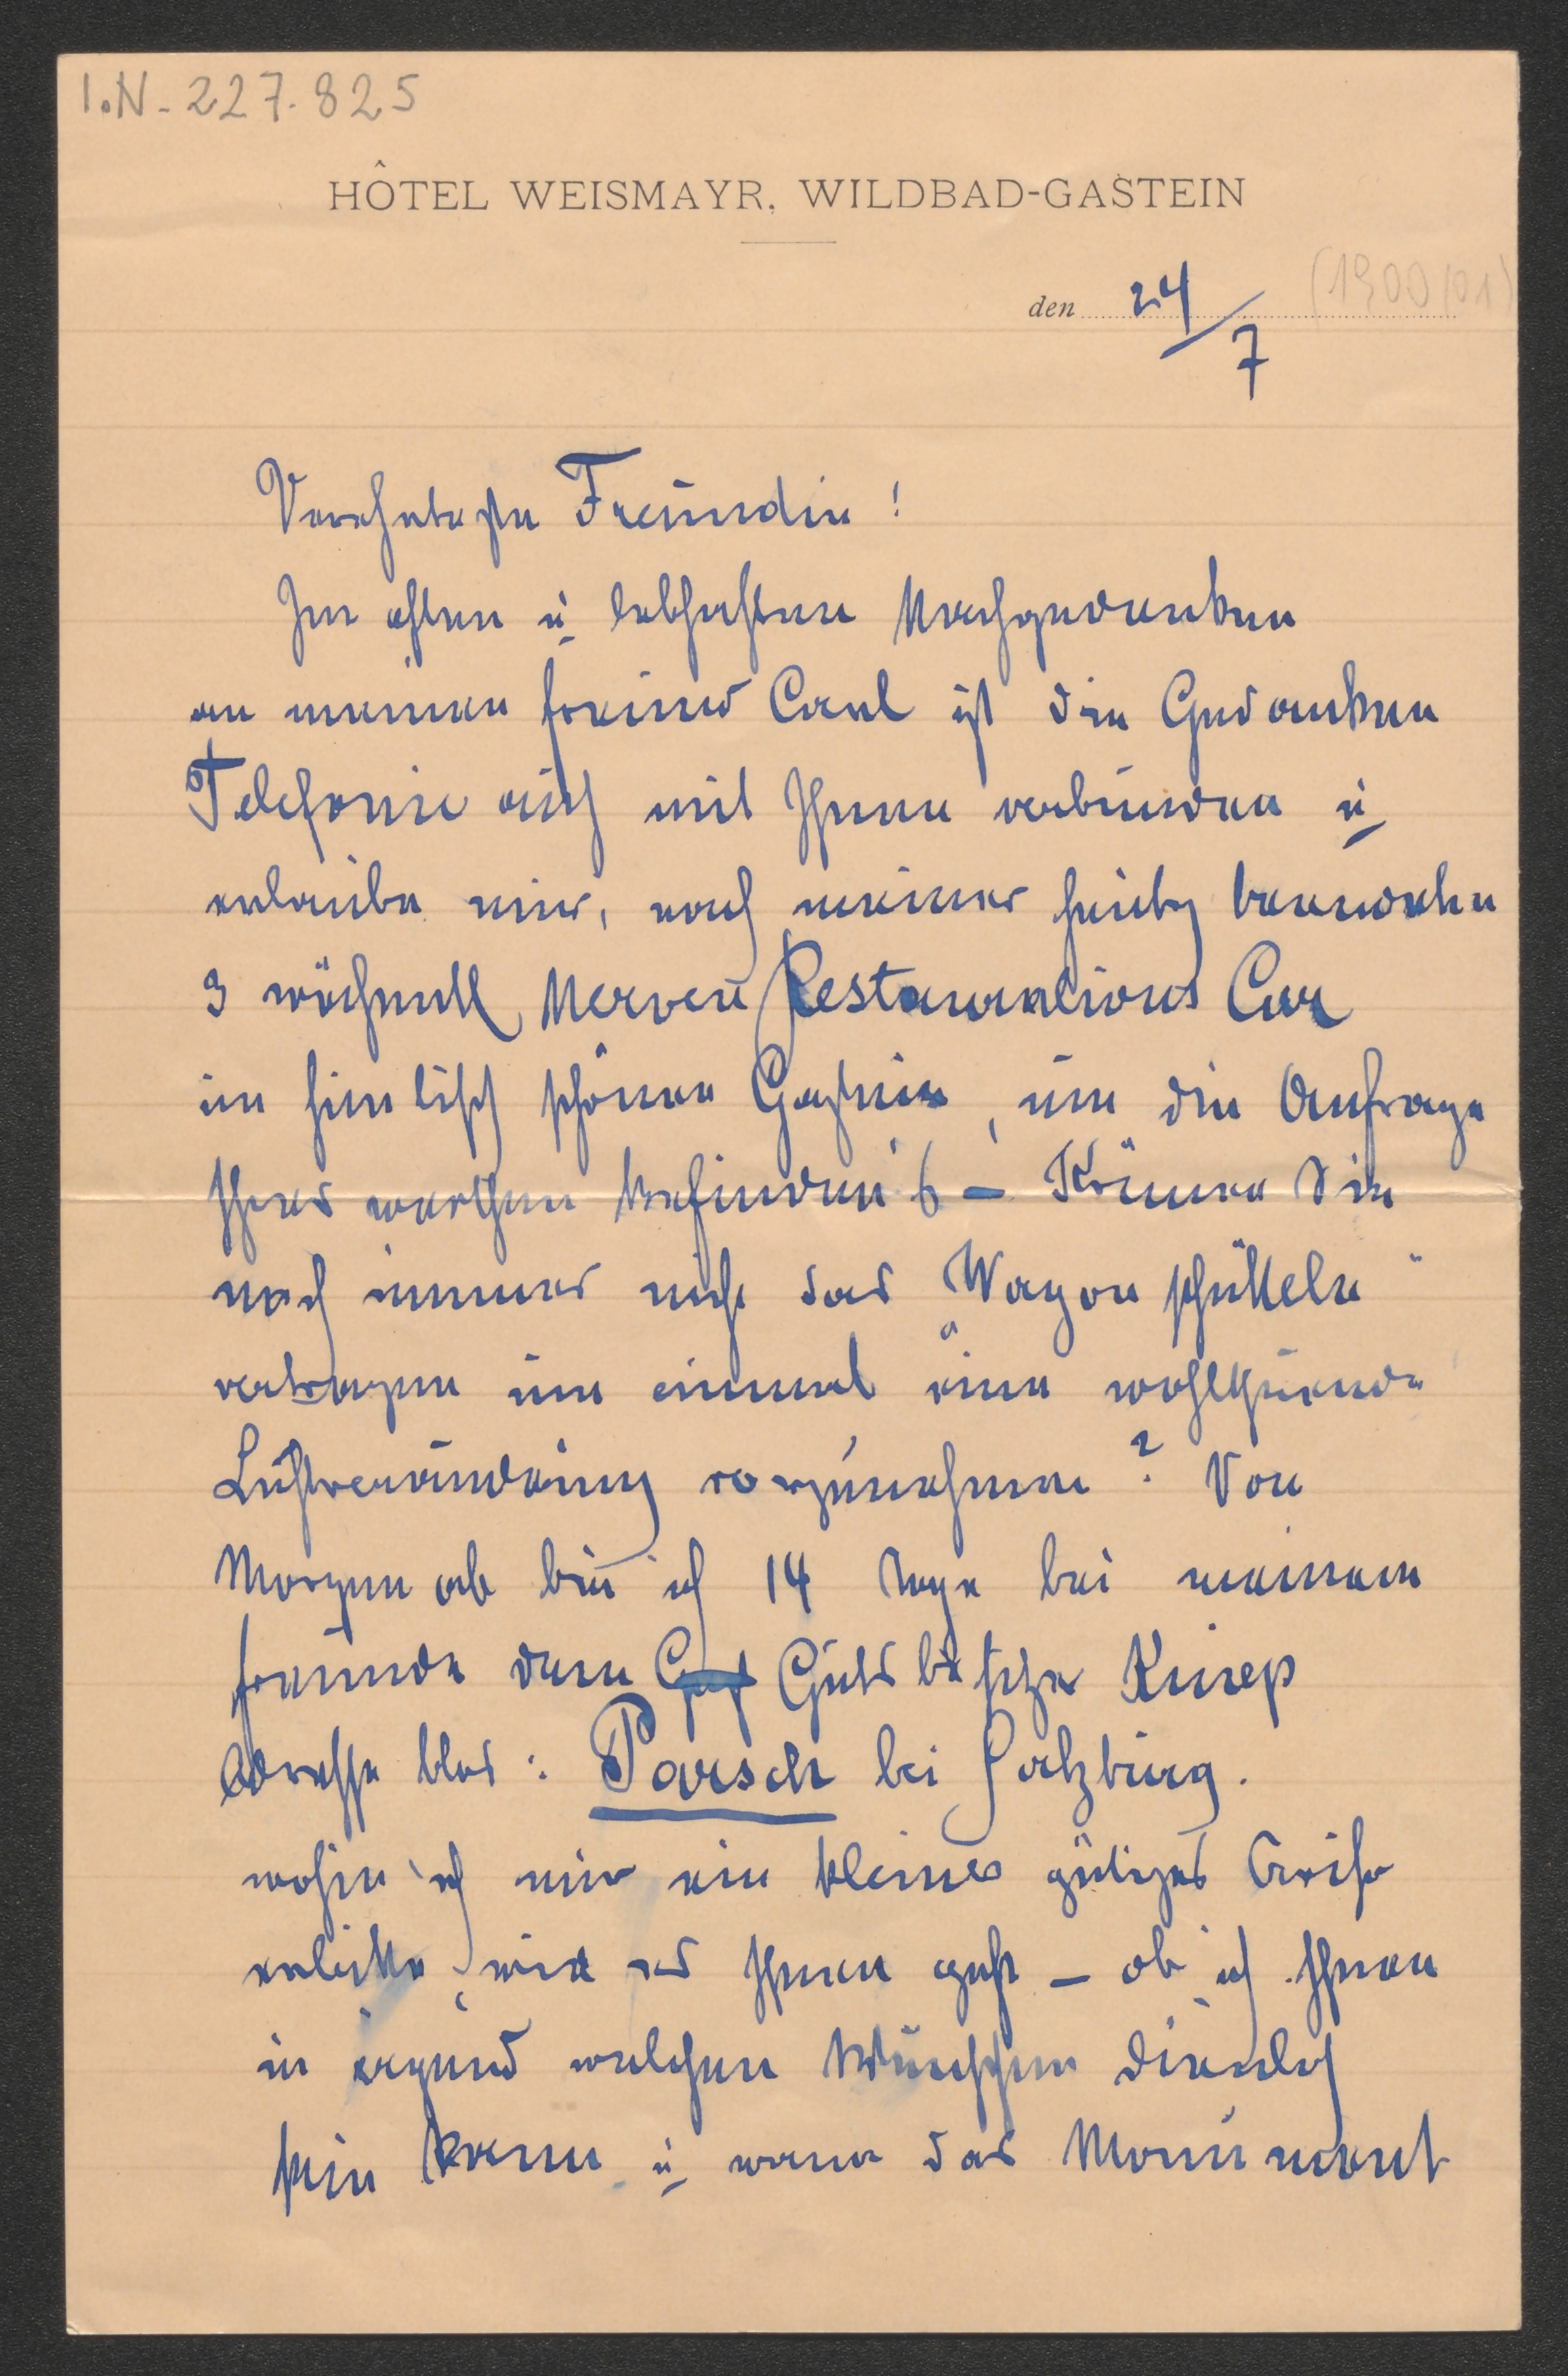 I.N. 227.825
HÔTEL WEISMAYR, WILDBAD-GASTEIN
den 24/7 (1900/01)
Verehrteste Freundin!
Im often u lebhaften Nachgedanken
an meinen freund Carl ist die Gedanken
Telefonie auch mit Ihnen verbunden u
erlaube mir, nach meiner heute beendeten
3 wöchentl Nerven Restaurations Cur
im himlisch schönen Gastein, um die Anfrage
Ihres werthen Befinden's – Können Sie
noch immer nicht das "Wagon schütteln"
vertragen um einmal eine wohlthuende
Luftveränderung vorzunehmen? Von
Morgen ab bin ich 14 Tage bei meinem
freunde dem Gutsbesitzer Knep
Adresse blos: Parsch bei Salzburg.
wohin ich mir ein kleines gütiges Aviso
erbitte, wie es Ihnen geht – ob ich Ihnen
in irgend welchen Wünschen dienlich
sein kann u wann das Monument